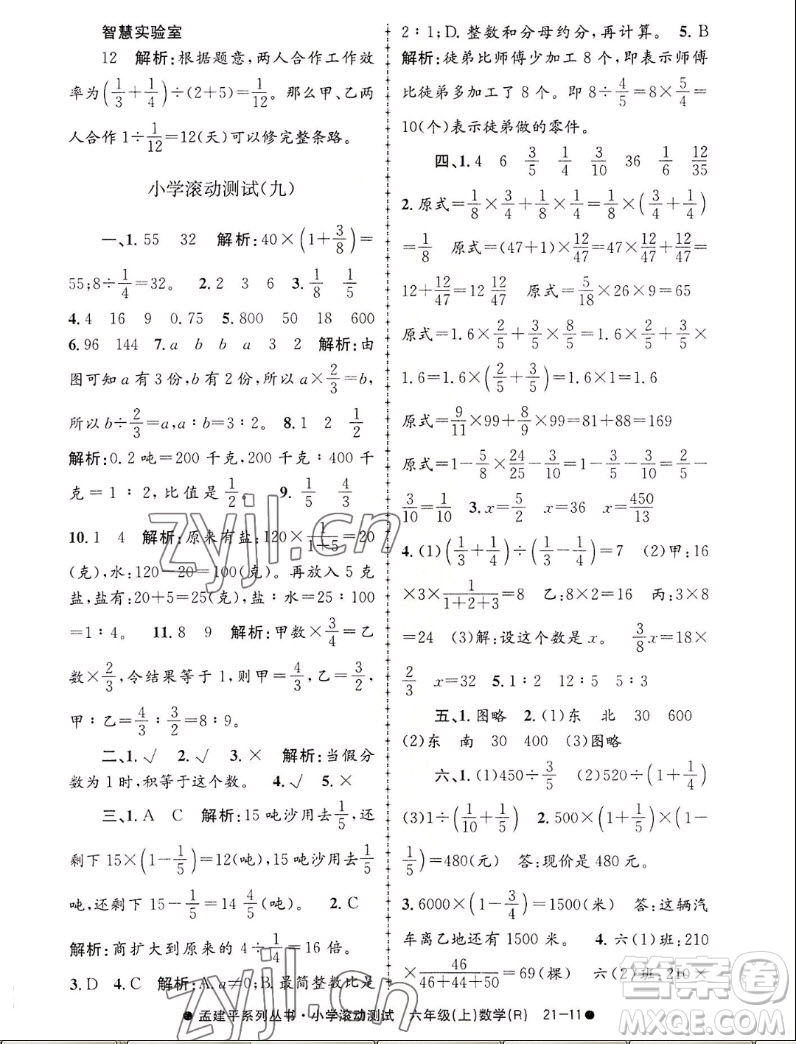 智慧实验室
12 解析:根据题意,两人合作工作效
率为(1/3+1/4)÷(2+5)=1/12。那么甲、乙两
人合作 1÷1/12=12(天)可以修完整条路。
小学滚动测试(九)
一、1. 55 32 解析:40×(1+3/8)=
55;8÷1/4=32。 2. 2 3 6 3. 1/8 1/5
4. 4 16 9 0.75 5. 800 50 18 600
6. 96 144 7. a b b a 3 2 解析:由
图可知 a 有 3 份,b 有 2 份,所以 a×2/3=b,
所以 b÷2/3=a,a∶b=3∶2。 8. 1 2 1/2
解析:0.2 吨=200 千克,200 千克∶400 千
克=1∶2,比值是1/2。 9. 1/5 4/5
10. 1 4 解析:原来有盐:120×1/(1+5)=20
(克),水:120-20=100(克)。再放入 5 克
盐,盐有:20+5=25(克),盐∶水=25∶100
=1∶4。 11. 8 9 解析:甲数×3/4=乙
数×2/3,令结果等于1,则甲=4/3,乙=3/2,
甲∶乙=4/3∶3/2=8∶9。
二、1. √ 2. √ 3. × 解析:当假分
数为 1 时,积等于这个数。 4. √ 5. ×
三、1. A C 解析:15 吨沙用去1/5,还
剩下 15×(1-1/5)=12(吨);15 吨沙用去1/5
吨,还剩下 15-1/5=14 4/5(吨)。 2. B
解析:商扩大到原来的 4÷1/4=16 倍。
3. D 4. C 解析:A. a≠0;B. 最简整数比是
2∶1;D. 整数和分母约分,再计算。 5. B
解析:徒弟比师傅少加工 8 个,即表示师傅
比徒弟多加工了 8 个。即 8÷4/5=8×5/4=
10(个)表示徒弟做的零件。
四、1. 4 6 3/5 3/10 36 1/6 12/35
2. 原式=1/8×3/4+1/8×1/4=1/8×(3/4+1/4)
=1/8 原式=(47+1)×12/47=47×12/47+
12/47=12 12/47 原式=5/18×26×9=65
原式=1.6×2/5+3/8×8/5=1.6×2/5+3/5×
1.6=1.6×(2/5+3/5)=1.6
原式=9/11×99+8/9×99=81+88=169
原式=1-5/8×24/25-3/10=1-3/5-
3/10=1/10 3. x=5/2 x=36 x=450/13
4. (1)(1/3+1/4)÷(1/3-1/4)=7 (2)甲:16
×3×1/(1+2+3)=8 乙:8×2=16 丙:3×8
=24 (3)解:设这个数是 x。 3/8x=18×
2/3 x=32 5. 1∶2 12∶5 5∶3
五、1. 图略 2. (1)东 北 30 600
(2)东 南 30 400 (3)图略
六、1. (1)450÷3/5 (2)520÷(1+1/4)
(3)1÷(1/10+1/5) 2. 500×(1+1/5)×(1-
1/5)=480(元) 答:现价是 480 元。
3. 6000×(1-3/4)=1500(米) 答:这辆汽
车离乙地还有 1500 米。 4. 六(1)班:210
×46/(46+44+50)=69(棵) 六(2)班:210×
孟建平系列丛书·小学滚动测试 六年级(上)数学(R) 21-11
zyjl.cn
zyjl.cn
答案圈
MXQE.COM